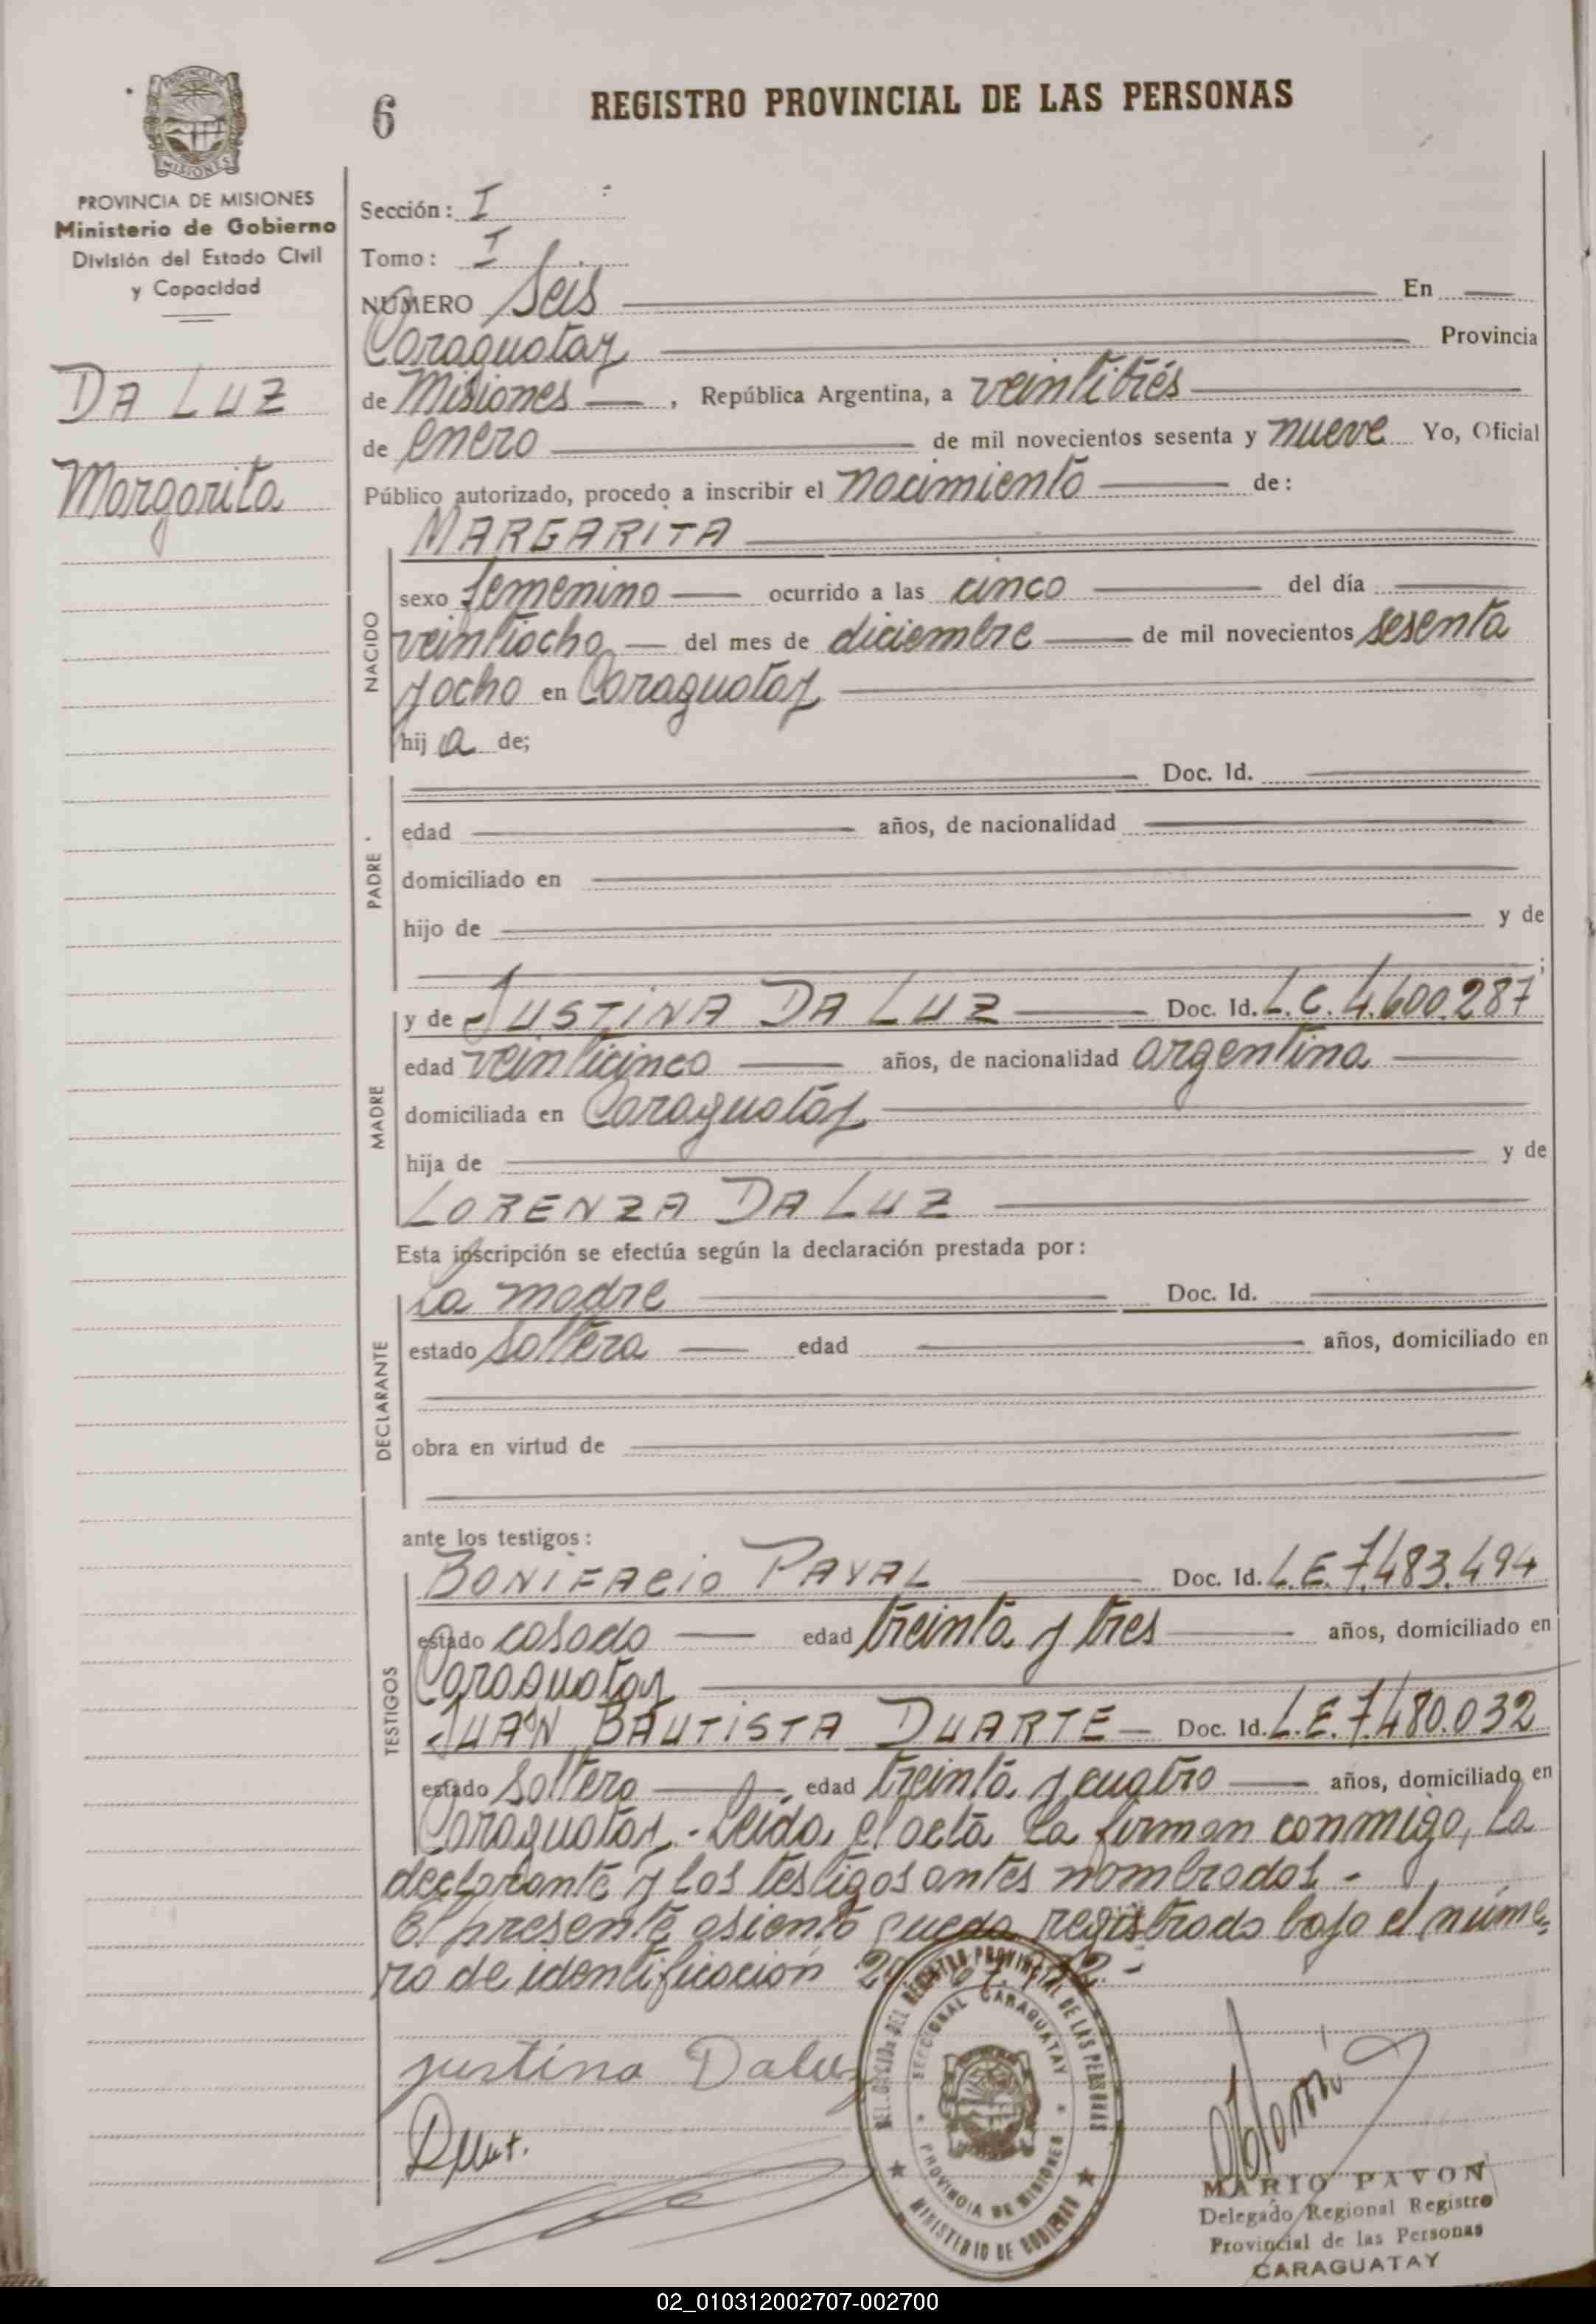 PROVINCIA DE MISIONES
Ministerio de Gobierno
División del Estado Civil
y Capacidad
DA LUZ
Margarita
6
REGISTRO PROVINCIAL DE LAS PERSONAS
Sección: I
Tomo: I
NUMERO Seis En
Caraguatay Provincia
de Misiones, República Argentina, a veintitrés
de enero de mil novecientos sesenta y nueve Yo, Oficial
Público autorizado, procedo a inscribir el nacimiento de:
MARGARITA
NACIDO
sexo femenino ocurrido a las cinco del día
veintiocho del mes de diciembre de mil novecientos sesenta
y ocho en Caraguatay
hij a de;
PADRE
Doc. Id.
edad años, de nacionalidad
domiciliado en
hijo de y de
;
MADRE
y de JUSTINA DA LUZ Doc. Id. L.C. 4.600.287
edad veinticinco años, de nacionalidad argentina
domiciliada en Caraguatay
hija de y de
LORENZA DA LUZ
Esta inscripción se efectúa según la declaración prestada por:
DECLARANTE
La madre Doc. Id.
estado Soltera edad años, domiciliado en
obra en virtud de
ante los testigos:
TESTIGOS
BONIFACIO PAYAL Doc. Id. L.E. 7.483.494
estado casado edad treinta y tres años, domiciliado en
Caraguatay
JUAN BAUTISTA DUARTE Doc. Id. L.E. 7.480.032
estado Soltero edad treinta y cuatro años, domiciliado en
Caraguatay.- Leida el acta la firman conmigo, la
declarante y los testigos antes nombrados.-
El presente asiento queda registrado bajo el núme-
ro de identificación
justina Daluz
DEL REGISTRO PROVINCIAL DE LAS PERSONAS
SECCIONAL CARAGUATAY
PROVINCIA DE MISIONES
MINISTERIO DE GOBIERNO
MARIO PAVON
Delegado Regional Registro
Provincial de las Personas
CARAGUATAY
02_010312002707-002700